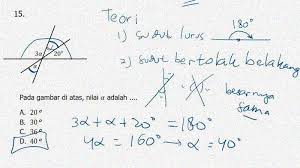 15.
3α
20°
α
Pada gambar di atas, nilai α adalah ....
A. 20°
B. 30°
C. 36°
D. 40°
Teori
1) sudut lurus 180°
2) sudut bertolak belakang
besarnya
sama
3α + α + 20° = 180°
4α = 160° → α = 40°